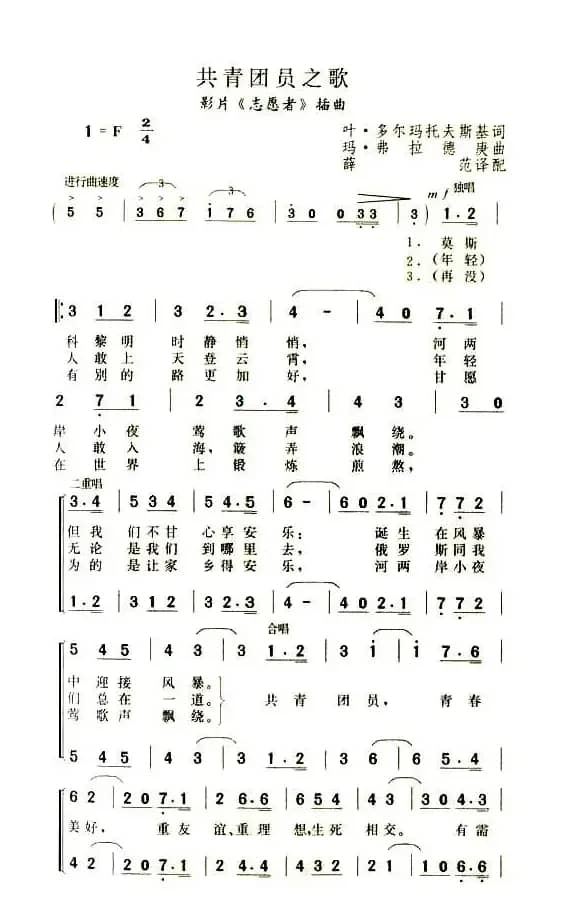 共青团员之歌
影片《志愿者》插曲
1 = F 2/4
叶·多尔玛托夫斯基词
玛·弗拉德庚曲
薛范译配
进行曲速度 3 3 mf 独唱
( 5 5 | 3 6 7 1 7 6 | 3 0 0 3 3 | 3 ) 1. 2 |
1. 莫斯
2. (年轻)
3. (再没)
3 1 2 | 3 2. 3 | 4 - | 4 0 7. 1 |
科黎明时静悄悄, 河两
人敢上天登云霄, 年轻
有别的路更加好, 甘愿
2 7 1 | 2 3. 4 | 4 3 | 3 0
岸小夜莺歌声飘绕。
人敢入海,簸弄浪潮。
在世界上锻炼煎熬,
二重唱
3. 4 | 5 1 2 | 5 4. 5 | 6 - | 6 0 2. 1 | 7 7 2
但我们不甘心享安乐: 诞生在风暴
无论是我们到哪里去, 俄罗斯同我
为的是让家乡得安乐, 河两岸小夜
1. 2 | 3 1 2 | 3 2. 3 | 4 - | 4 0 2. 1 | 7 7 2
合唱
5 4 5 | 4 3 | 3 1. 2 | 3 i | i 7. 6
中迎接风暴。
们总在一道。 共青团员, 青春
莺歌声飘绕。
5 4 5 | 4 3 | 3 1. 2 | 3 6 | 6 5. 4
6 2 | 2 0 7. 1 | 2 6. 6 | 6 5 4 | 3 2 | 3 0 4. 3
美好, 重友谊、重理想,生死相交。 有需
4 2 | 2 0 7. 1 | 2 4. 4 | 4 3 2 | 1 7 | 1 0 6. 6